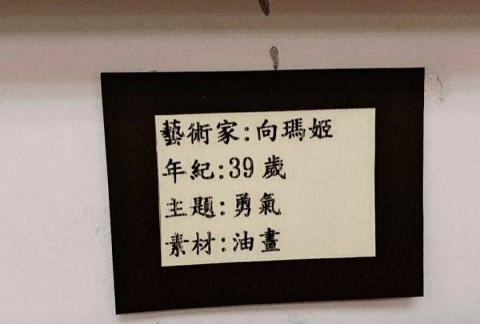 藝術家:向瑪姬
年紀:39 歲
主題:勇氣
素材:油畫